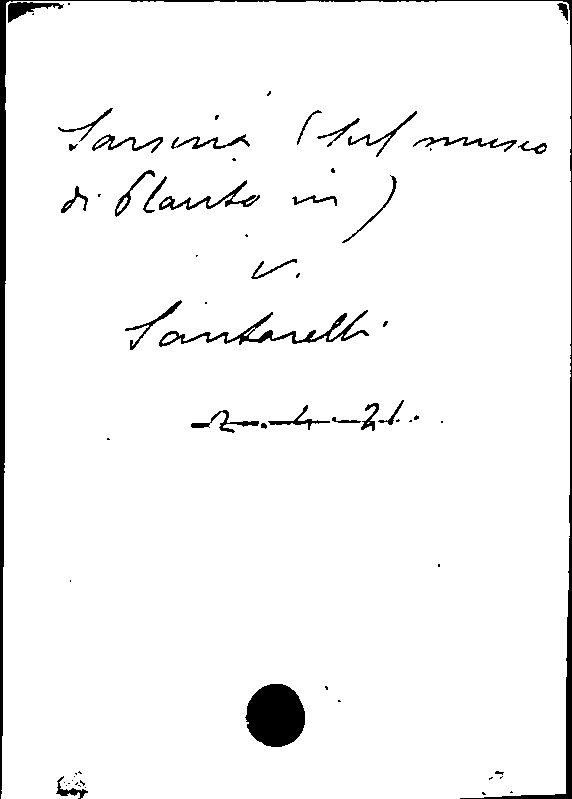 Sarsina (Sul museo
di Plauto in)
v.
Santarelli
2. 4. 21.